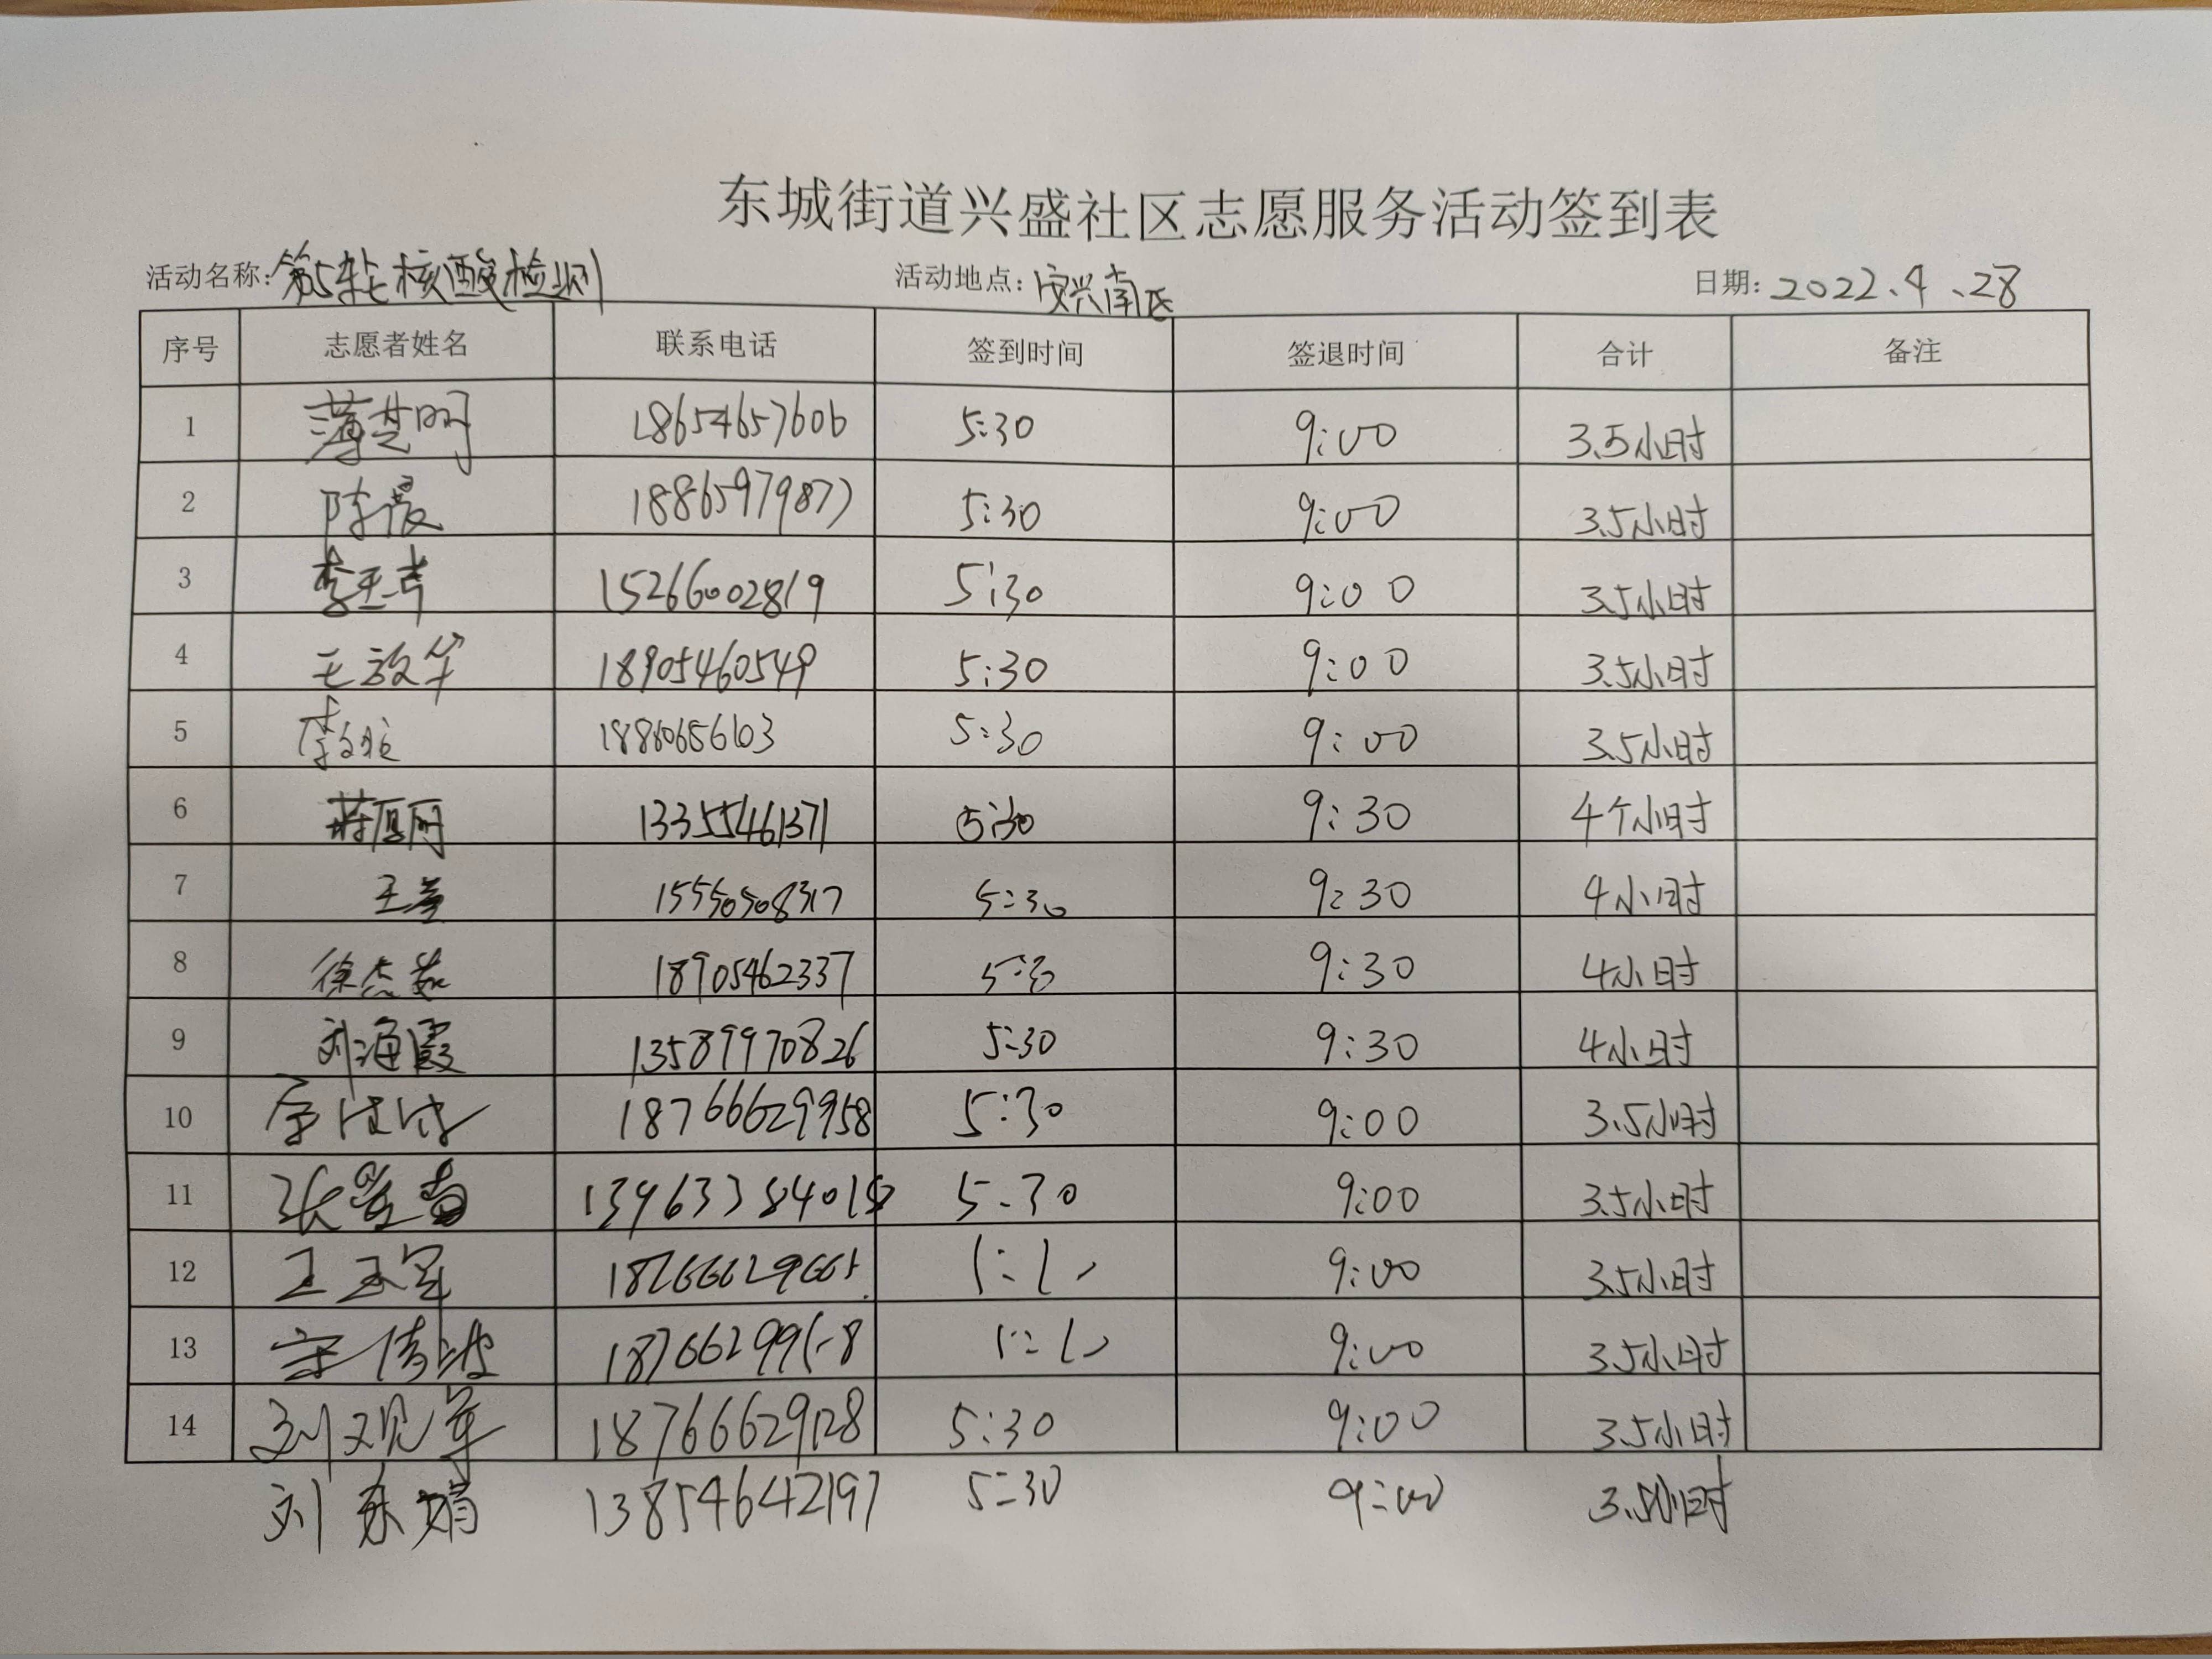 东城街道兴盛社区志愿服务活动签到表
活动名称:第5轮核酸检测 活动地点:安兴南区 日期:2022.4.28
序号 志愿者姓名 联系电话 签到时间 签退时间 合计 备注
1 薄楚明 18654657606 5:30 9:00 3.5小时
2 陈 18865979877 5:30 9:00 3.5小时
3 李玉芹 15266002819 5:30 9:00 3.5小时
4 王效华 18905460549 5:30 9:00 3.5小时
5 李 18860656603 5:30 9:00 3.5小时
6 蒋丽 13355461371 5:30 9:30 4个小时
7 王 15550508317 5:30 9:30 4小时
8 徐杰 18905462337 5:30 9:30 4小时
9 刘海霞 13589970826 5:30 9:30 4小时
10 18766629958 5:30 9:00 3.5小时
11 张 5:30 9:00 3.5小时
12 王玉军 9:00 3.5小时
13 9:00 3.5小时
14 刘观军 18766629128 5:30 9:00 3.5小时
刘东娟 13854642197 5:30 9:00 3.5小时